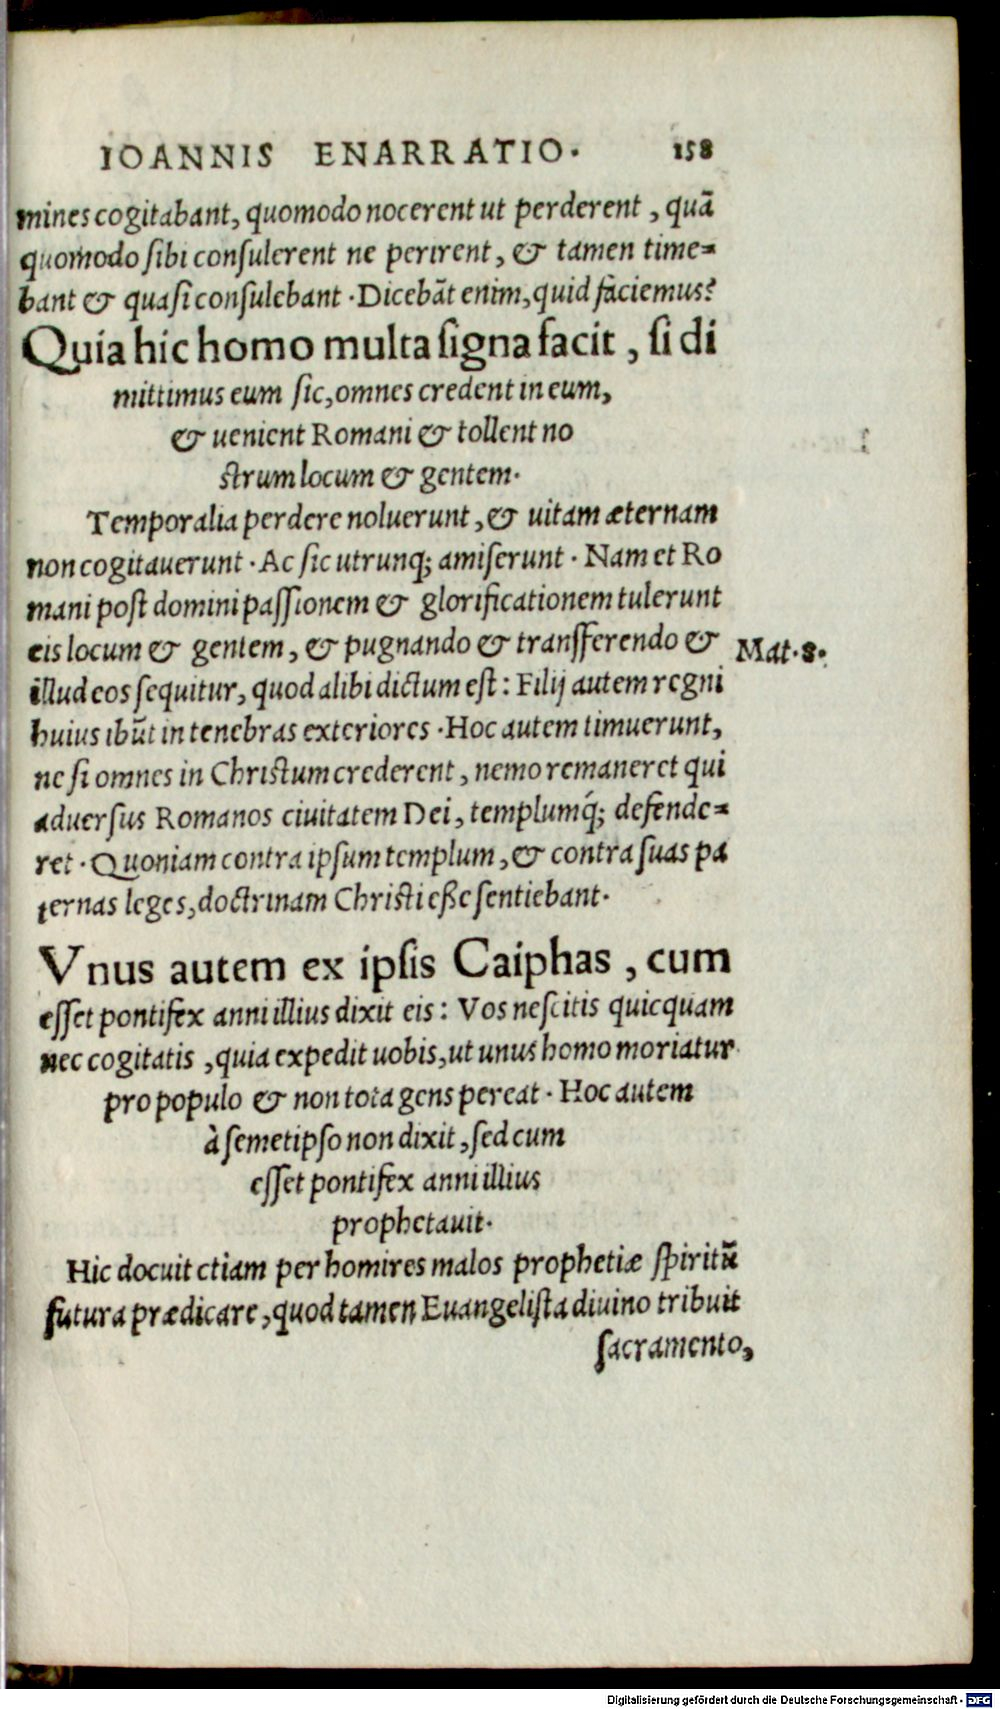 IOANNIS ENARRATIO. 158
mines cogitabant, quomodo nocerent ut perderent, quā
quomodo sibi consulerent ne perirent, & tamen time=
bant & quasi consulebant. Dicebāt enim, quid faciemus?
Quia hic homo multa signa facit, si di
mittimus eum sic, omnes credent in eum,
& uenient Romani & tollent no
strum locum & gentem.
Temporalia perdere noluerunt, & uitam æternam
non cogitauerunt. Ac sic utrunq; amiserunt. Nam et Ro
mani post domini passionem & glorificationem tulerunt
eis locum & gentem, & pugnando & transferendo &
Mat. 8.
illud eos sequitur, quod alibi dictum est: Filij autem regni
huius ibūt in tenebras exteriores. Hoc autem timuerunt,
ne si omnes in Christum crederent, nemo remaneret qui
aduersus Romanos ciuitatem Dei, templumq́; defende=
ret. Quoniam contra ipsum templum, & contra suas pa
ternas leges, doctrinam Christi eße sentiebant.
Vnus autem ex ipsis Caiphas, cum
esset pontifex anni illius dixit eis: Vos nescitis quicquam
nec cogitatis, quia expedit uobis, ut unus homo moriatur
pro populo & non tota gens pereat. Hoc autem
à semetipso non dixit, sed cum
esset pontifex anni illius
prophetauit.
Hic docuit etiam per homires malos prophetiæ spiritū
futura prædicare, quod tamen Euangelista diuino tribuit
sacramento,
Digitalisierung gefördert durch die Deutsche Forschungsgemeinschaft - DFG